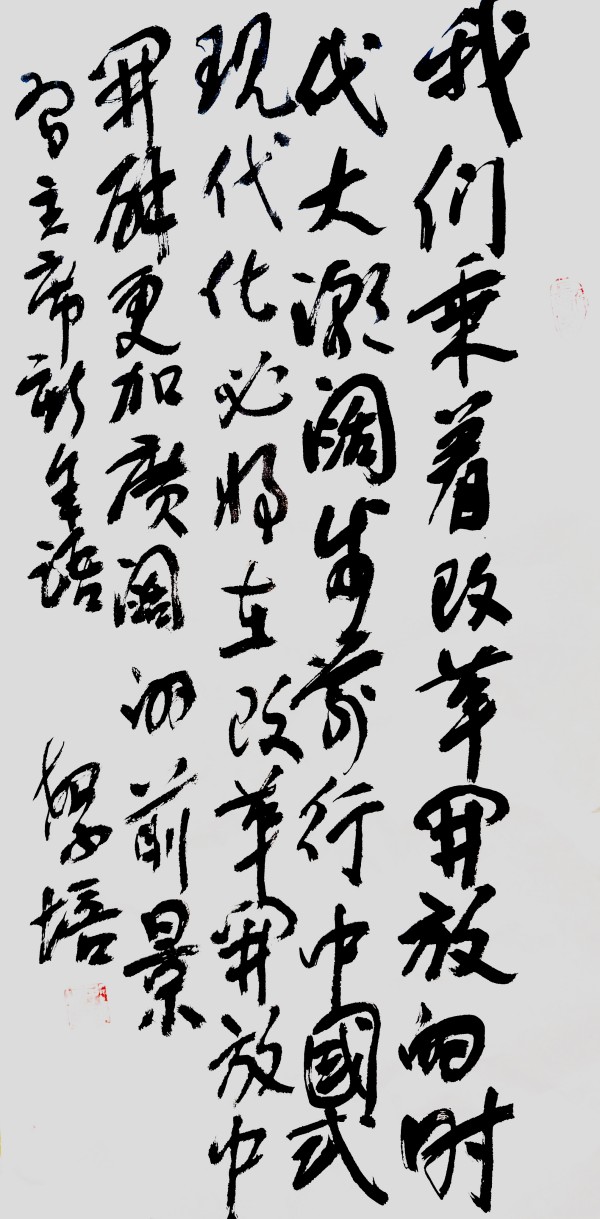 我们乘着改革開放的时
代大潮阔步前行中國式
现代化必将在改革開放中
開辟更加廣阔的前景
習主席新年语
培